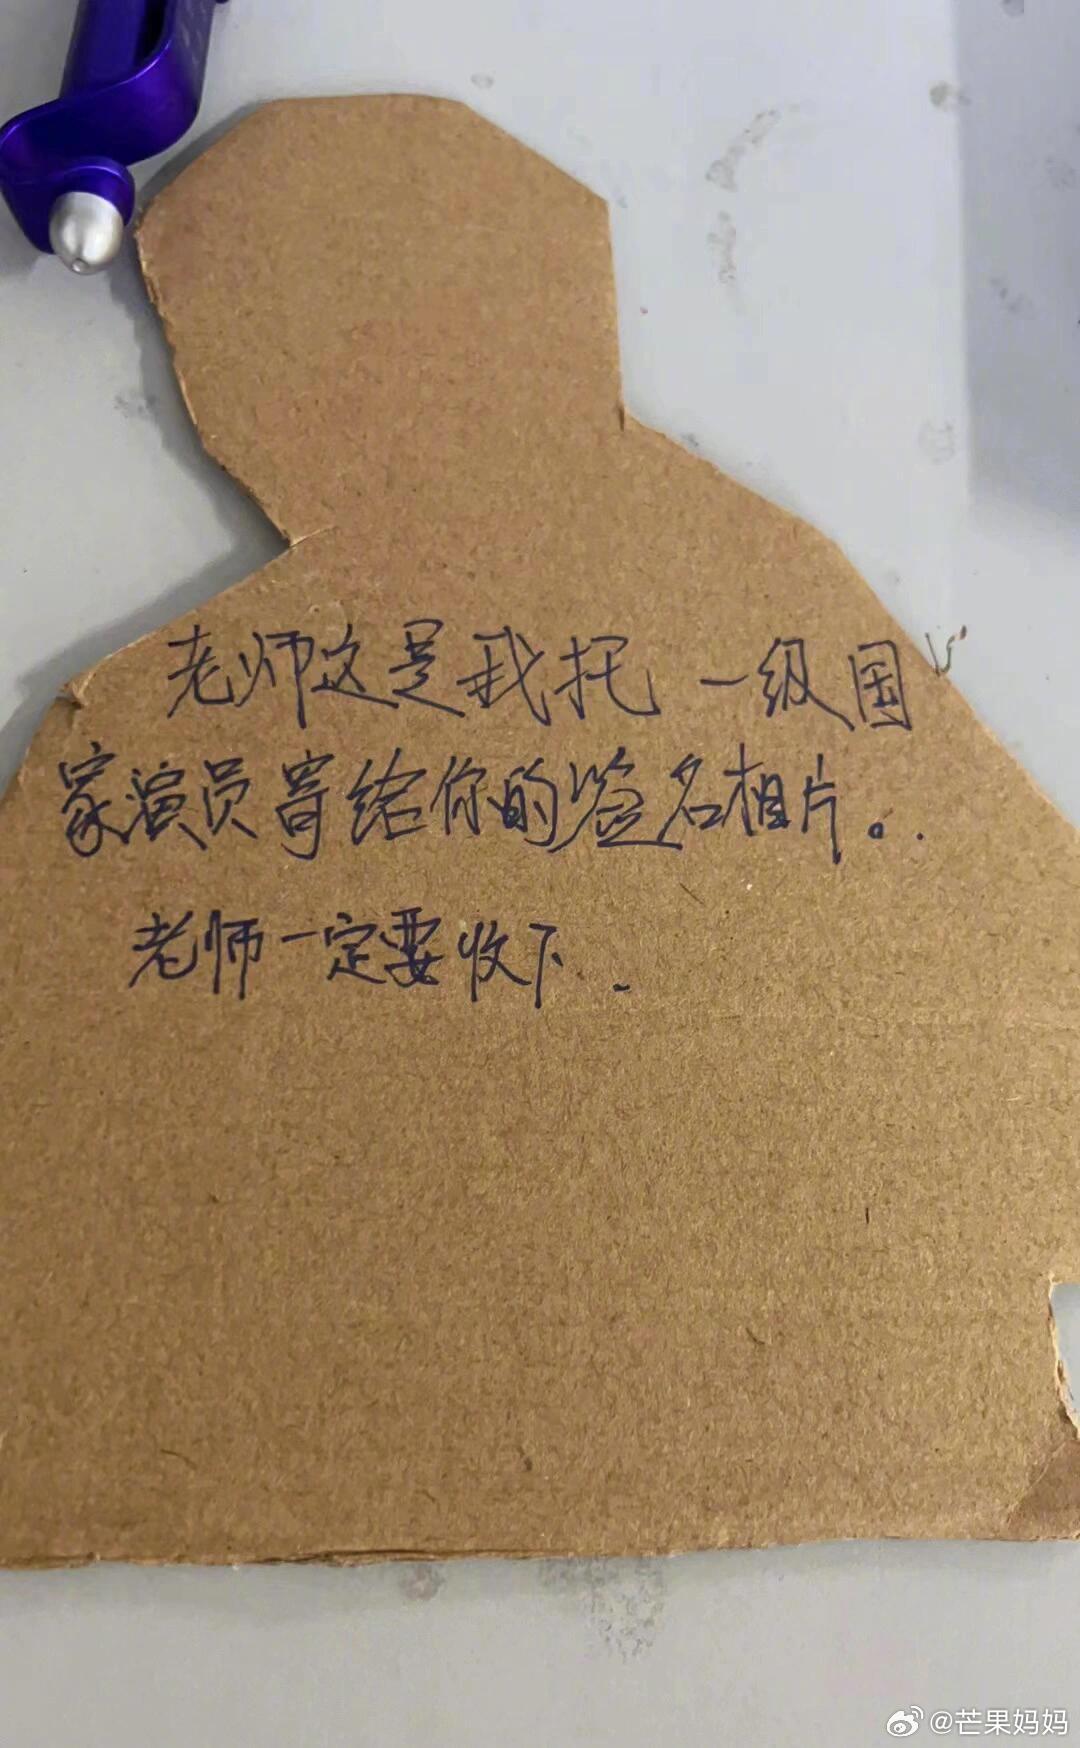 老师这是我托一级国
家演员寄给你的签名相片。.
老师一定要收下.
@芒果妈妈